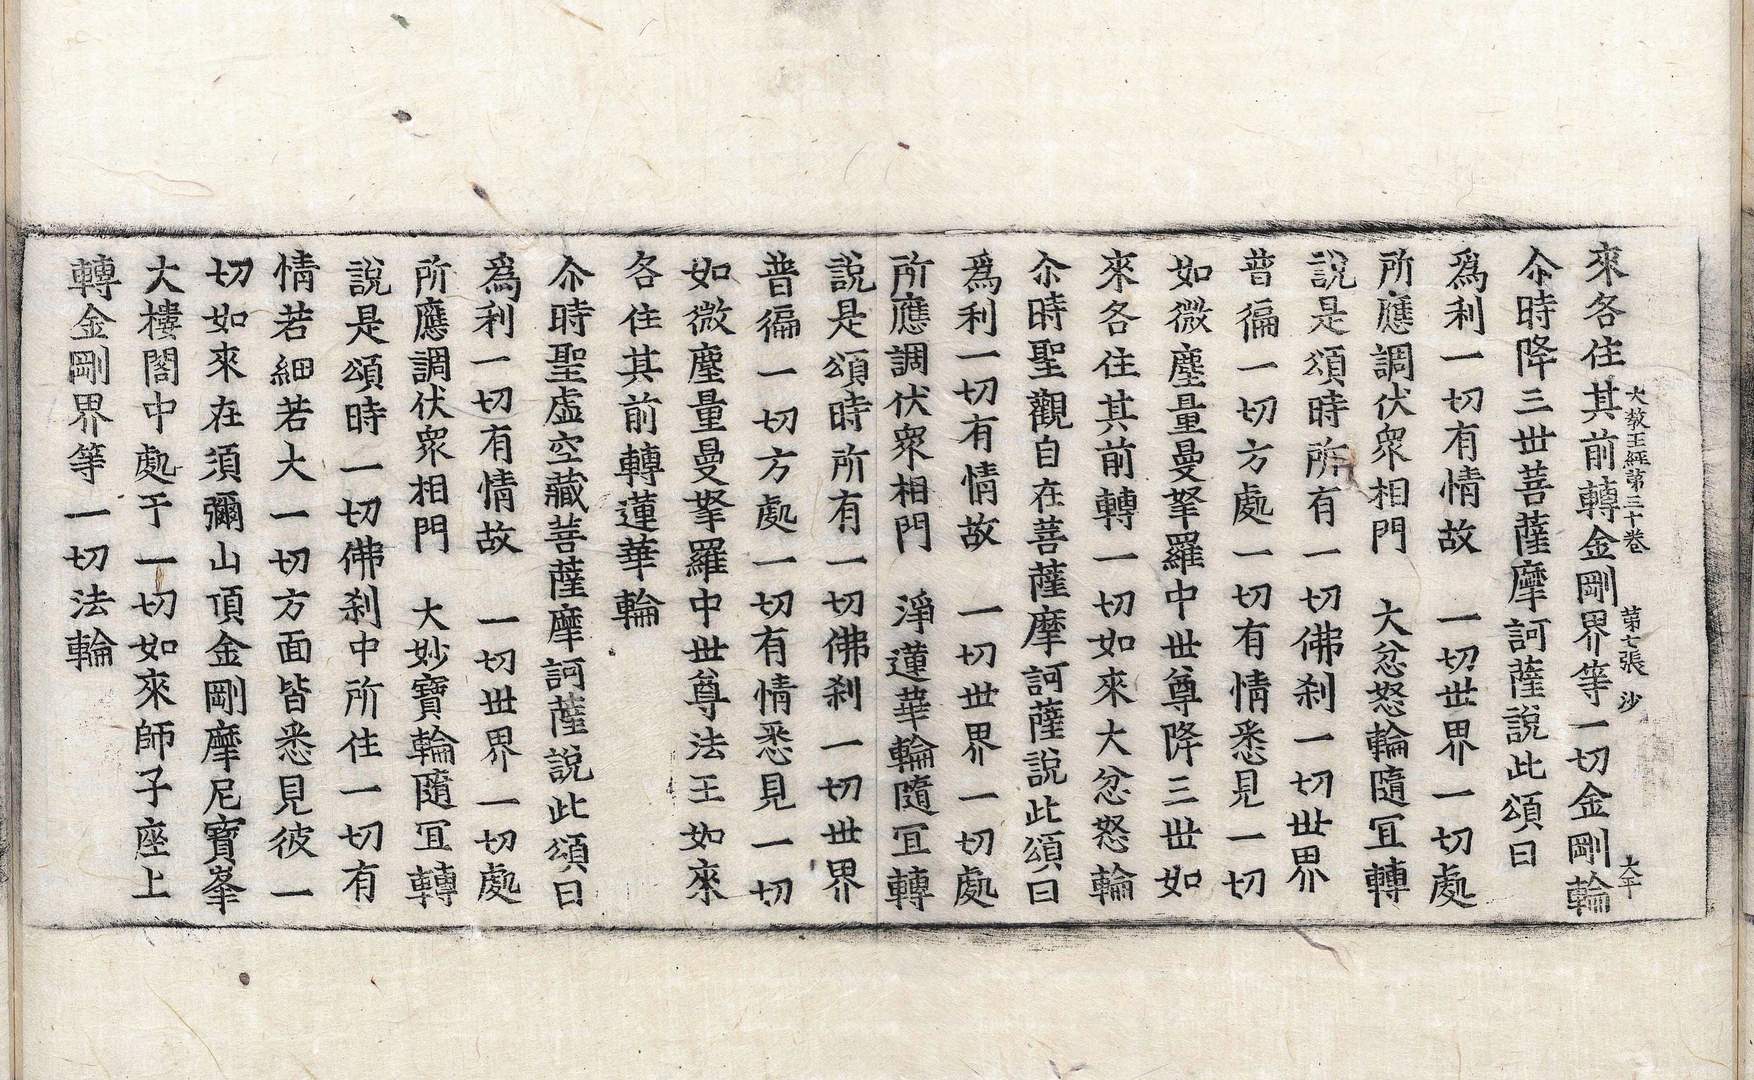 大教王經第三十卷　第七張　沙　大平
來各住其前轉金剛界等一切金剛輪
尒時降三世菩薩摩訶薩說此頌曰
爲利一切有情故　一切世界一切處
所應調伏衆相門　大忿怒輪隨冝轉
說是頌時所有一切佛刹一切世界
普徧一切方處一切有情悉見一切
如微塵量曼拏羅中世尊降三世如
來各住其前轉一切如來大忿怒輪
尒時聖觀自在菩薩摩訶薩說此頌曰
爲利一切有情故　一切世界一切處
所應調伏衆相門　淨蓮華輪隨冝轉
說是頌時所有一切佛刹一切世界
普徧一切方處一切有情悉見一切
如微塵量曼拏羅中世尊法王如來
各住其前轉蓮華輪
尒時聖虛空藏菩薩摩訶薩說此頌曰
爲利一切有情故　一切世界一切處
所應調伏衆相門　大妙寶輪隨冝轉
說是頌時一切佛刹中所住一切有
情若細若大一切方面皆悉見彼一
切如來在須彌山頂金剛摩尼寶峯
大樓閣中處于一切如來師子座上
轉金剛界等一切法輪